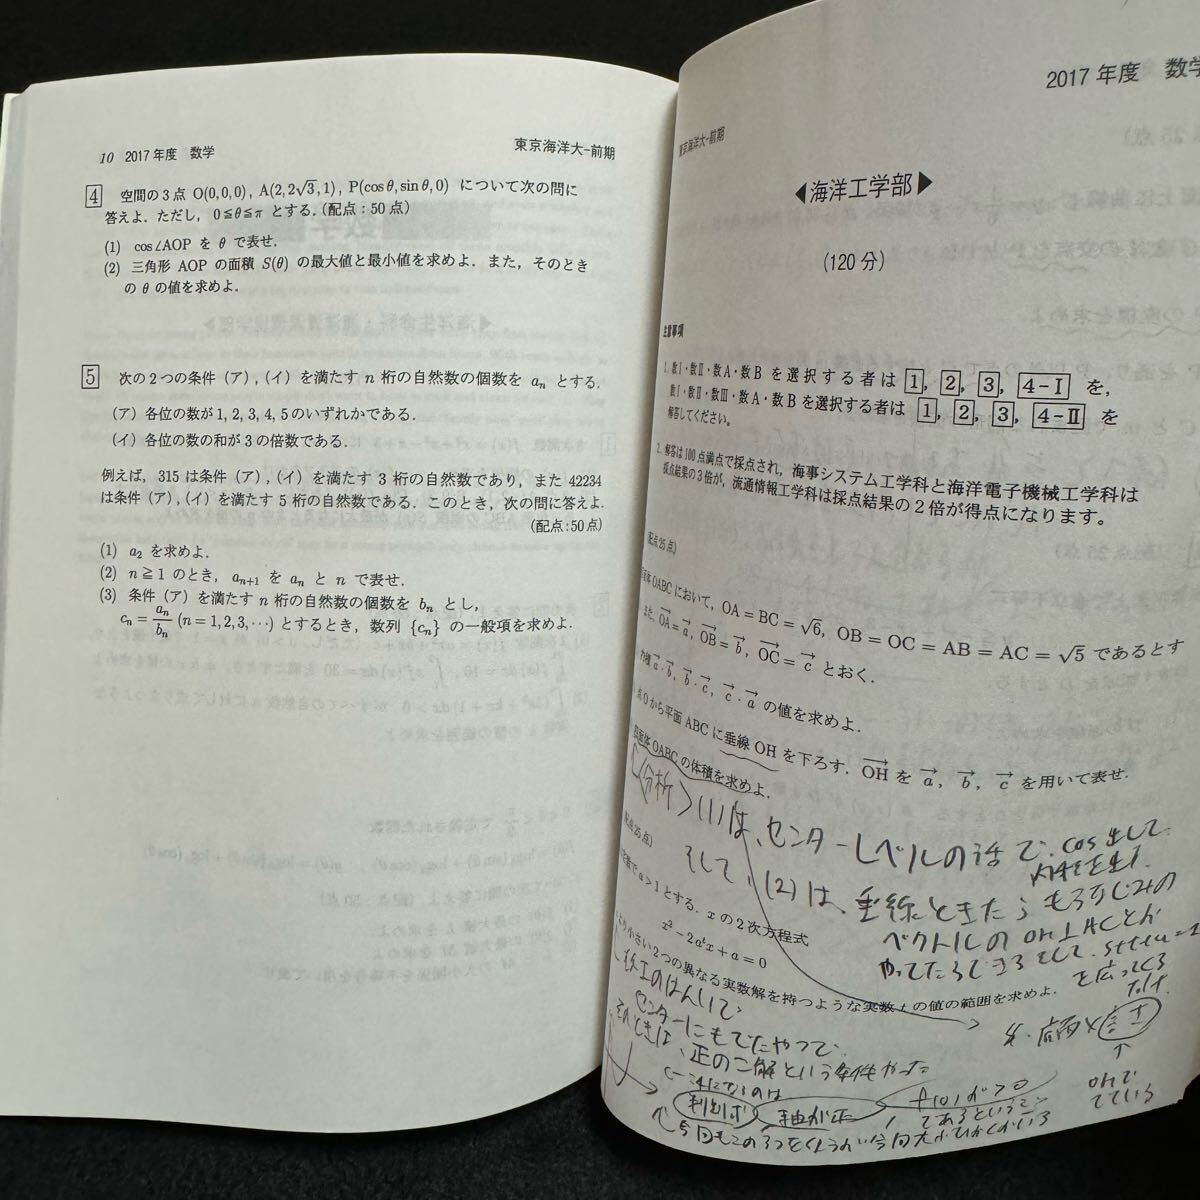 10 2017年度 数学
東京海洋大-前期
4 空間の3点 O(0,0,0), A(2,2√3,1), P(cosθ,sinθ,0) について次の問に
答えよ．ただし，0≦θ≦π とする．(配点：50点)
(1) cos∠AOP を θ で表せ．
(2) 三角形 AOP の面積 S(θ) の最大値と最小値を求めよ．また，そのとき
の θ の値を求めよ．
5 次の2つの条件（ア），（イ）を満たす n 桁の自然数の個数を aₙ とする．
（ア）各位の数が 1, 2, 3, 4, 5 のいずれかである．
（イ）各位の数の和が 3 の倍数である．
例えば，315 は条件（ア），（イ）を満たす 3 桁の自然数であり，また 42234
は条件（ア），（イ）を満たす 5 桁の自然数である．このとき，次の問に答えよ．
(配点：50点)
(1) a₂ を求めよ．
(2) n≧1 のとき，aₙ₊₁ を aₙ と n で表せ．
(3) 条件（ア）を満たす n 桁の自然数の個数を bₙ とし，
cₙ = aₙ/bₙ (n=1,2,3,···) とするとき，数列 {cₙ} の一般項を求めよ．
2017年度 数学
東京海洋大-前期
◀海洋工学部▶
(120分)
注意事項
1. 数Ⅰ・数Ⅱ・数A・数B を選択する者は 1, 2, 3, 4-Ⅰ を，
数Ⅰ・数Ⅱ・数Ⅲ・数A・数B を選択する者は 1, 2, 3, 4-Ⅱ を
解答してください。
2. 解答は100点満点で採点され，海事システム工学科と海洋電子機械工学科は
採点結果の3倍が，流通情報工学科は採点結果の2倍が得点になります。
(配点25点)
OABC において，OA = BC = √6, OB = OC = AB = AC = √5 であるとす
また，OA→ = a→, OB→ = b→, OC→ = c→ とおく．
内積 a→·b→, b→·c→, c→·a→ の値を求めよ．
点Oから平面 ABC に垂線 OH を下ろす．OH→ を a→, b→, c→ を用いて表せ．
四面体OABC の体積を求めよ．
〈分析〉(1)は、センターレベルの話で、cos出して
内積を出す．
そして、(2)は、垂線ときたらもうおなじみの
ベクトルの OH⊥ACとか
(配点25点)
a>1 とする．x の2次方程式
x² − 2aᵗx + a = 0
より小さい2つの異なる実数解を持つような実数 t の値の範囲を求めよ．
センターにもでたやつで、
そのときは、正の二解という条件だった
判別式
軸が正
f(0)>0